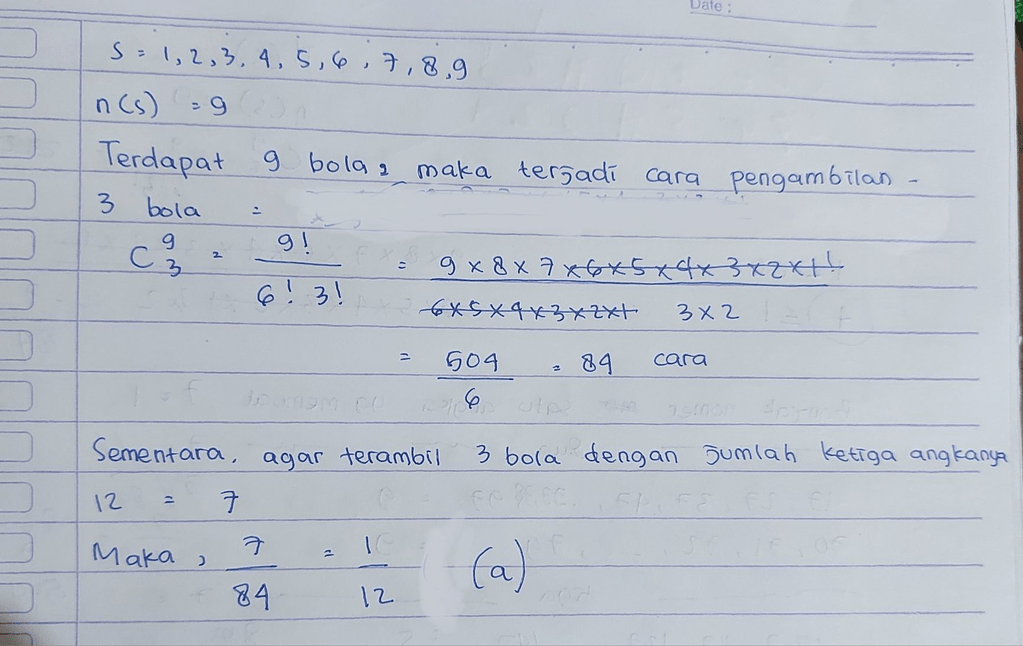 Date :
S = 1, 2, 3, 4, 5, 6, 7, 8, 9
n(s) = 9
Terdapat 9 bola, maka terjadi cara pengambilan -
3 bola =
C 9 3 = 9! / 6! 3! = 9 x 8 x 7 x 6 x 5 x 4 x 3 x 2 x 1! / 6 x 5 x 4 x 3 x 2 x 1 3 x 2
= 504 / 6 = 84 cara
Sementara, agar terambil 3 bola dengan jumlah ketiga angkanya
12 = 7
Maka, 7 / 84 = 1 / 12 (a)